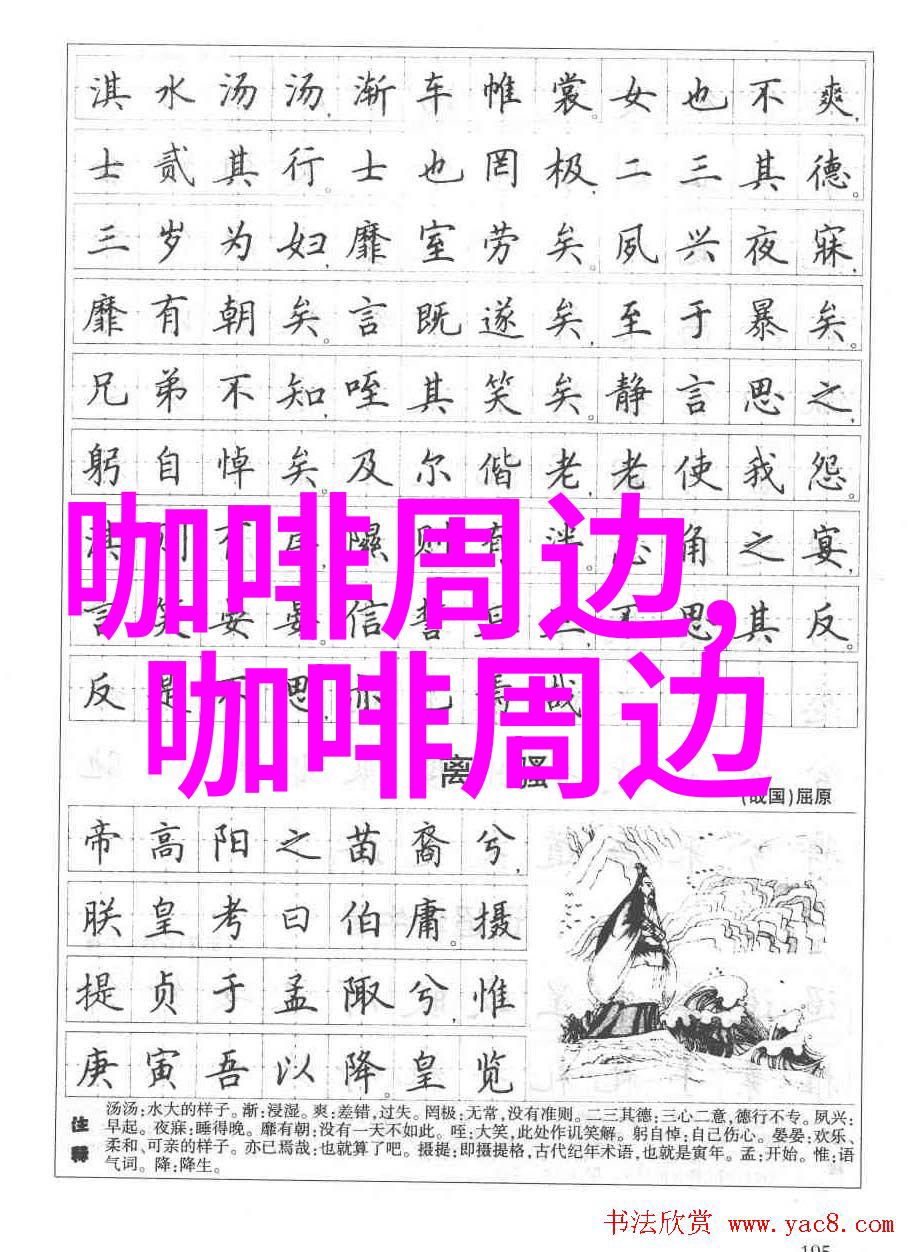 淇水汤汤,渐车帷裳。女也不爽,
士贰其行。士也罔极,二三其德。
三岁为妇,靡室劳矣。夙兴夜寐,
靡有朝矣。言既遂矣,至于暴矣。
兄弟不知,咥其笑矣。静言思之,
躬自悼矣。及尔偕老,老使我怨。
咖啡周边,
淇则有岸,隰则有泮。总角之宴,
言笑晏晏。信誓旦旦,不思其反。
咖啡周边
反是不思,亦已焉哉
离骚
(战国)屈原
帝高阳之苗裔兮,
朕皇考曰伯庸。摄
提贞于孟陬兮,惟
庚寅吾以降。皇览
注释
汤汤:水大的样子。渐:浸湿。爽:差错,过失。罔极:无常,没有准则。二三其德:三心二意,德行不专。夙兴:
早起。夜寐:睡得晚。靡有朝:没有一天不如此。咥:大笑,此处作讥笑解。躬自悼:自己伤心。晏晏:欢乐、
柔和、可亲的样子。亦已焉哉:也就算了吧。摄提:即摄提格,古代纪年术语,也就是寅年。孟:开始。惟:语
气词。降:降生。
书法欣赏 www.yac8.com
105